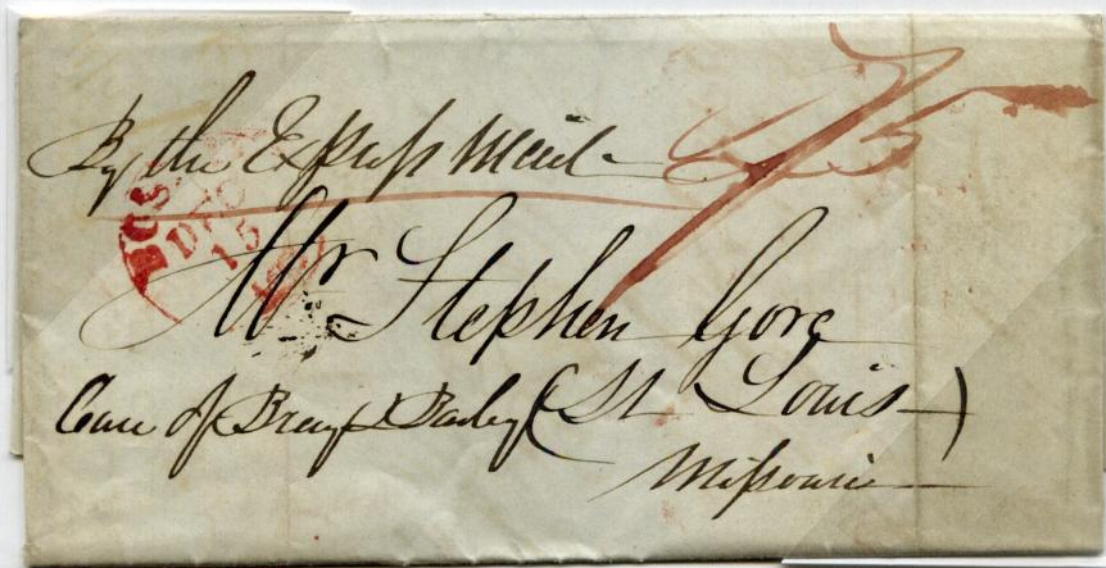 By the Express Mail
75
BOS
DEC
15
Mr. Stephen Gore
Care of Bray & Bailey (St Louis)
Missouri